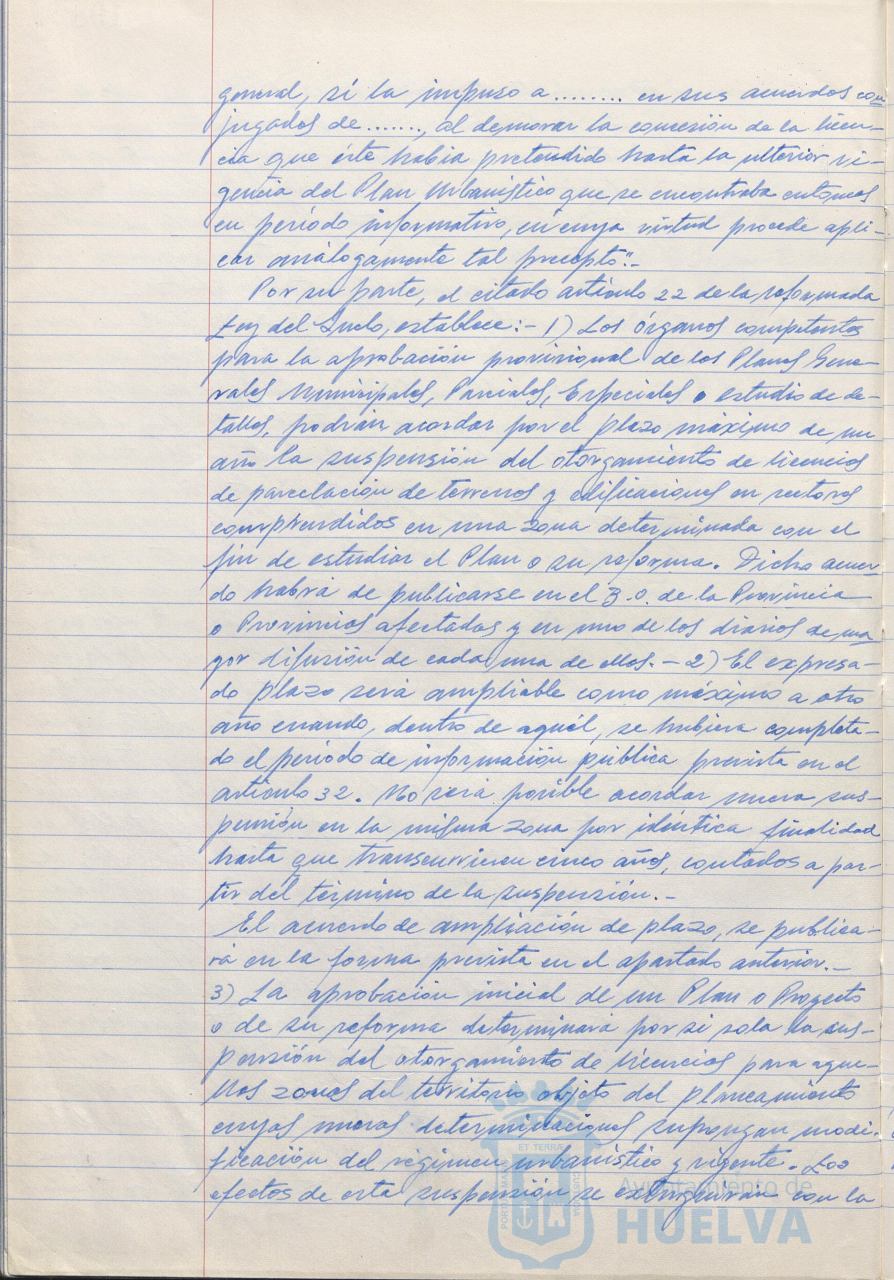 general, sí la impuso a ........ en sus acuerdos con
jugados de ......., al demorar la concesión de la licen-
cia que éste había pretendido hasta la ulterior vi-
gencia del Plan Urbanístico que se encontraba entonces
en período informativo, en cuya virtud procede apli-
car análogamente tal precepto".-
Por su parte, el citado artículo 22 de la reformada
Ley del Suelo, establece:- 1) Los órganos competentes
para la aprobación provisional de los Planes Gene-
rales Municipales, Parciales, Especiales o estudio de de-
talles, podrán acordar por el plazo máximo de un
año la suspensión del otorgamiento de licencias
de parcelación de terrenos y edificaciones en sectores
comprendidos en una zona determinada con el
fin de estudiar el Plan o su reforma. Dicho acuer-
do habrá de publicarse en el B.O. de la Provincia
o Provincias afectadas y en uno de los diarios de ma
yor difusión de cada una de ellos.- 2) El expresa-
do plazo será ampliable como máximo a otro
año cuando, dentro de aquél, se hubiera completa-
do el período de información pública prevista en el
artículo 32. No será posible acordar nueva sus-
pensión en la misma zona por idéntica finalidad
hasta que transcurriesen cinco años, contados a par-
tir del término de la suspensión.-
El acuerdo de ampliación de plazo, se publica-
rá en la forma prevista en el apartado anterior.-
3) La aprobación inicial de un Plan o Proyecto
o de su reforma determinará por sí sola la sus-
pensión del otorgamiento de licencias para aque-
llas zonas del territorio objeto del planeamiento
cuyas nuevas determinaciones supongan modi-
ficación del régimen urbanístico y vigente. Los
efectos de esta suspensión se extinguirán con la
PORTUS MARIS ET TERRAE CUSTODIA
Ayuntamiento de
HUELVA